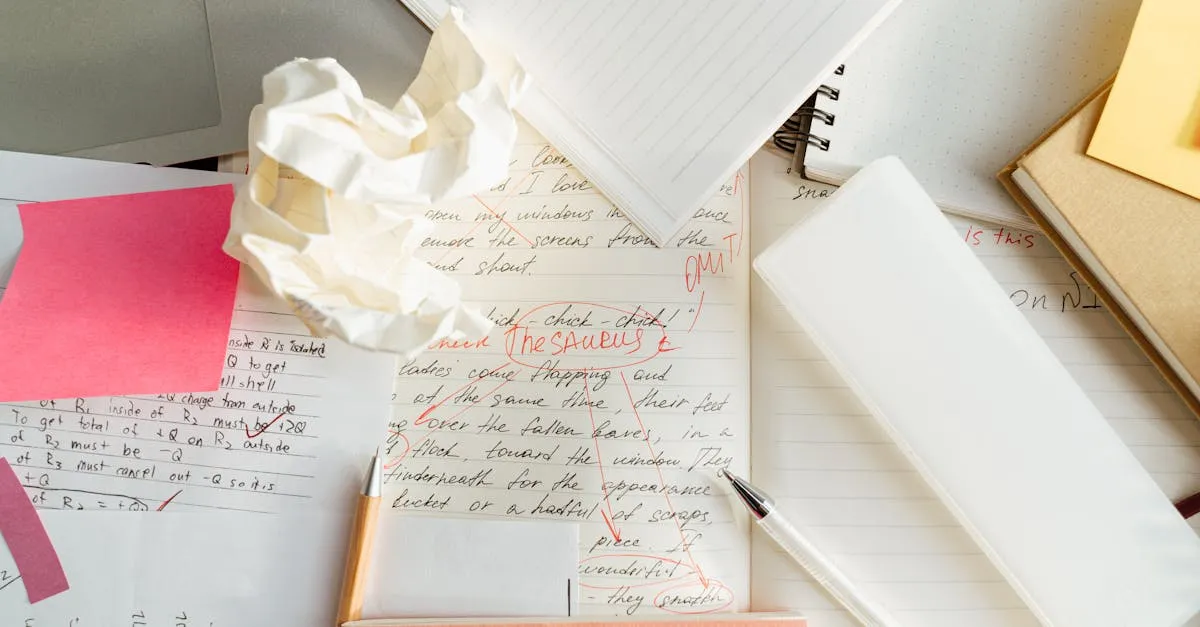 look
I love
open my windows in once
emove the screens from the
and shout.
OMIT
hick - chick - chick! "
check THESAURUS
ladies come flapping and
at the same time, their feet
over the fallen leaves, in a
flock, toward the window. They
finderneath for the appearance
bucket or a hatful of scraps,
piece. If
wonderful -
- they snatch
inside Ri is isolated
Q to get
all shell
+2Q charge from outside
of R1 inside of R2 must be +2Q
To get total of +Q on R2 outside
of R2 must be -Q
of R3 must cancel out -Q so it is
+Q
of R2 = +Q
sna
is this
on